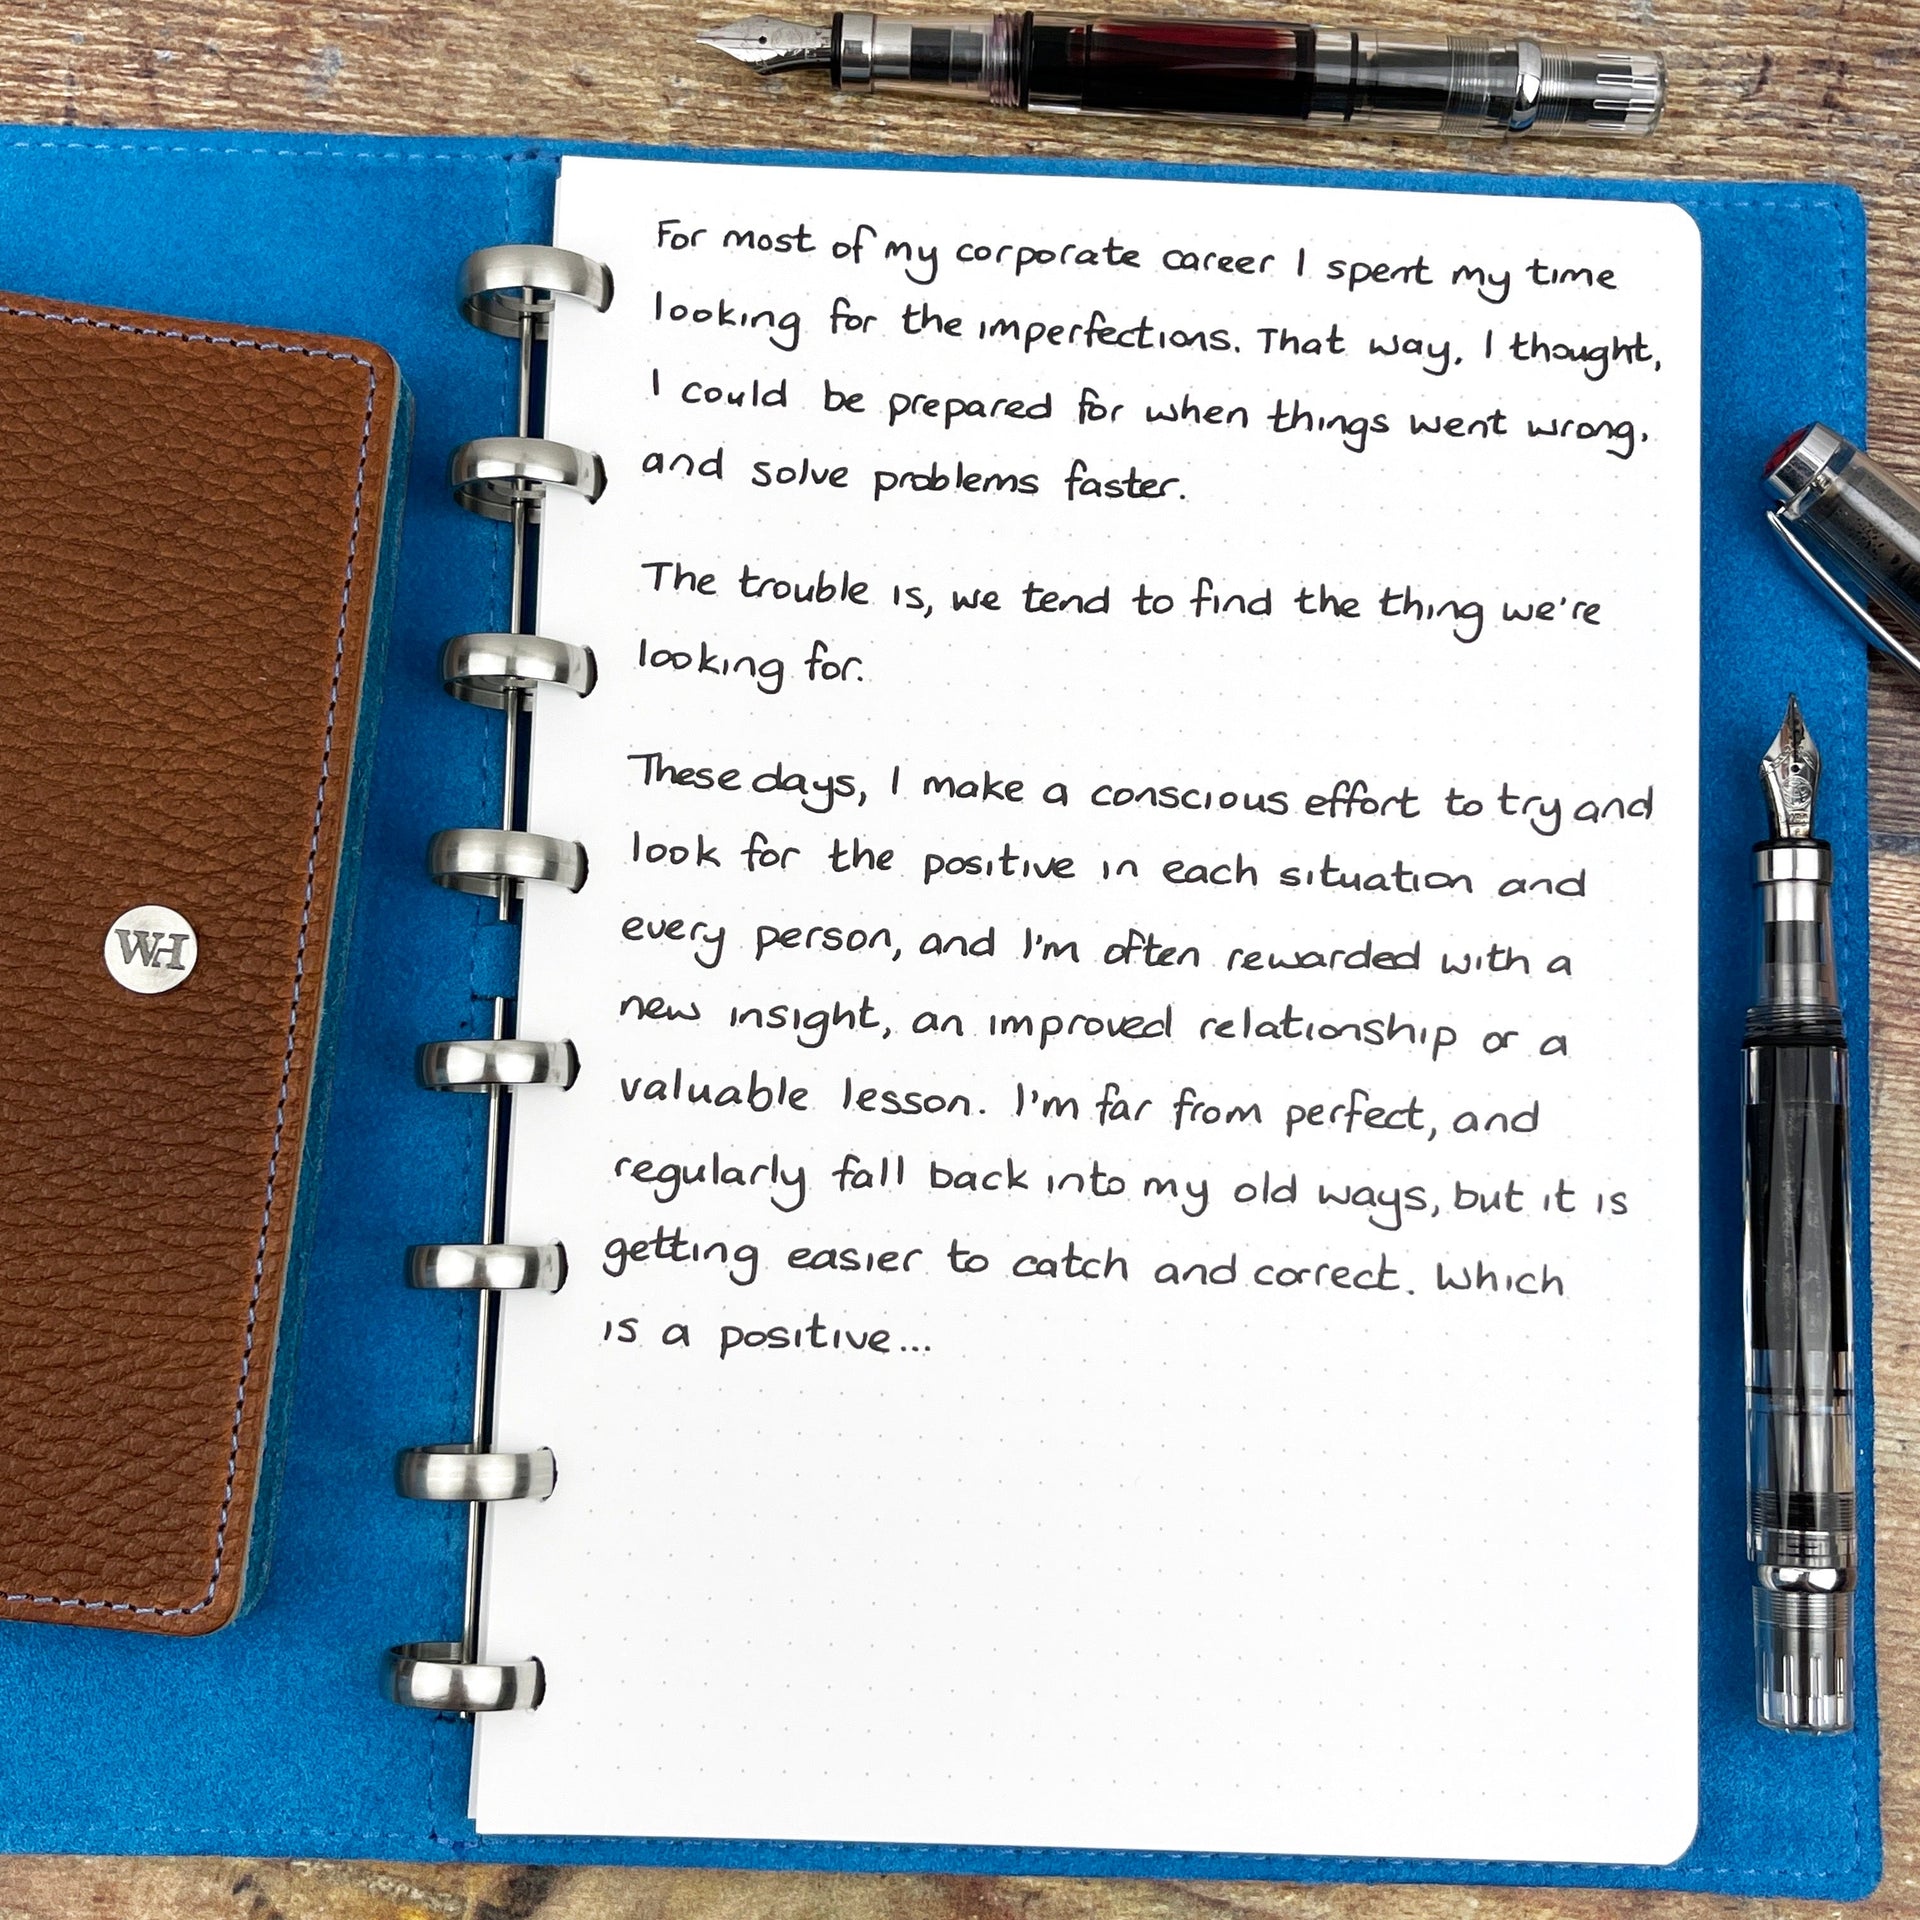 For most of my corporate career I spent my time
looking for the imperfections. That way, I thought,
I could be prepared for when things went wrong,
and solve problems faster.
The trouble is, we tend to find the thing we're
looking for.
These days, I make a conscious effort to try and
look for the positive in each situation and
every person, and I'm often rewarded with a
new insight, an improved relationship or a
valuable lesson. I'm far from perfect, and
regularly fall back into my old ways, but it is
getting easier to catch and correct. Which
is a positive...
WH